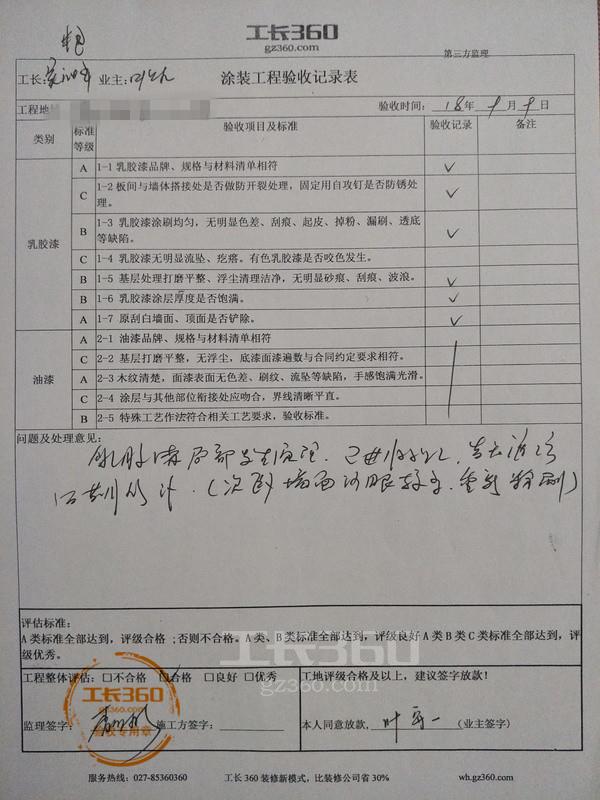 工长360
gz360.com
第三方监理
工长: 业主: 涂装工程验收记录表
工程地 验收时间: 18年 9月 9日
类别 标准等级 验收项目及标准 验收记录 备注
乳胶漆
A 1-1乳胶漆品牌、规格与材料清单相符 ✓
C 1-2板间与墙体搭接处是否做防开裂处理,固定用自攻钉是否防锈处
理。 ✓
B 1-3 乳胶漆涂刷均匀,无明显色差、刮痕、起皮、掉粉、漏刷、透底
等缺陷。 ✓
C 1-4 乳胶漆无明显流坠、疙瘩。有色乳胶漆是否咬色发生。
B 1-5 基层处理打磨平整、浮尘清理洁净,无明显砂痕、刮痕、波浪。 ✓
B 1-6 乳胶漆涂层厚度是否饱满。 ✓
A 1-7 原刮白墙面、顶面是否铲除。 ✓
油漆
A 2-1 油漆品牌、规格与材料清单相符
C 2-2 基层打磨平整,无浮尘,底漆面漆遍数与合同约定要求相符。
A 2-3 木纹清楚,面漆表面无色差、刷纹、流坠等缺陷,手感饱满光滑。
C 2-4 涂层与其他部位衔接处应吻合,界线清晰平直。
B 2-5 特殊工艺作法符合相关工艺要求,验收标准。
问题及处理意见:
乳胶漆局部
(次卧墙面 重新粉刷)
评估标准:
A 类标准全部达到,评级合格;否则不合格。A 类、B 类标准全部达到,评级良好 A 类 B 类 C 类标准全部达到,评
级优秀。
工长360
gz360.com
工程整体评估: □不合格 □合格 □良好 □优秀 工地评级合格及以上,建议签字放款!
工长360
gz360.com
验收专用章
监理签字: 施工方签字: 本人同意放款, (业主签字)
服务热线: 027-85360360 工长 360 装修新模式,比装修公司省 30% wh.gz360.com